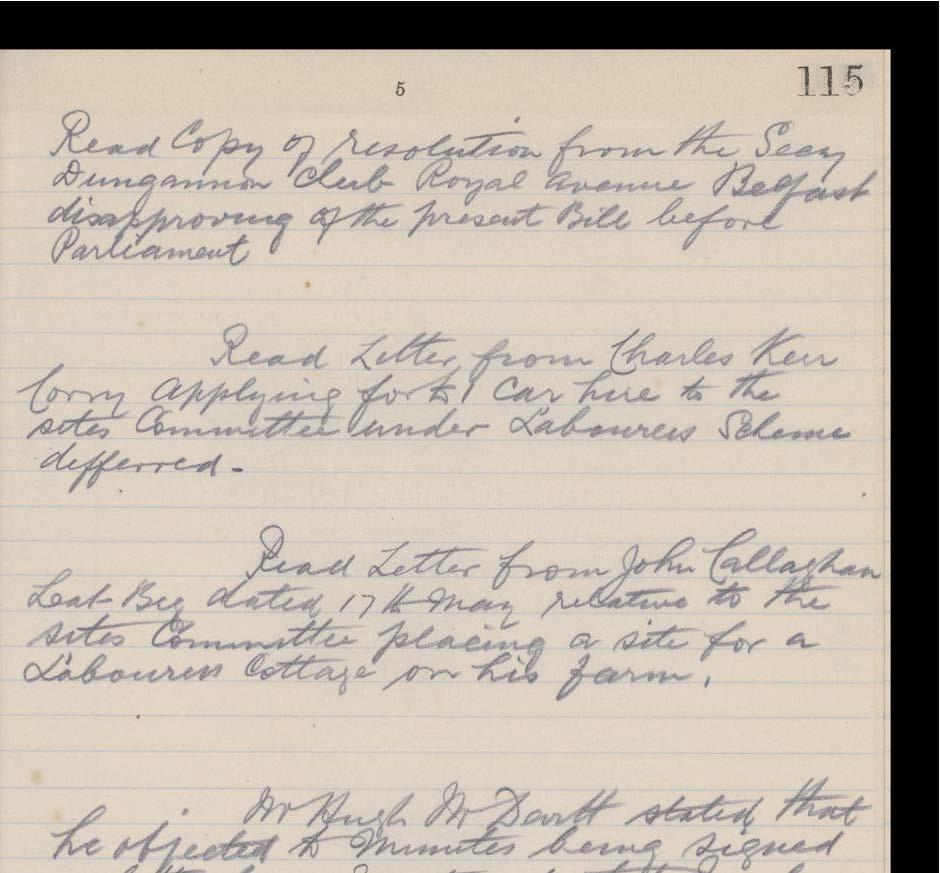 5
115
Read Copy of resolution from the Secy
Dungannon Club Royal Avenue Belfast
disapproving of the present Bill before
Parliament
Read Letter from Charles Kerr
Corry Applying for Car hire to the
sites Committee under Labourers Scheme
defferred -
Read Letter from John Callaghan
Leat Beg dated 17th May relative to the
sites Committee placing a site for a
Labourers Cottage on his farm.
Mr Hugh Mc Devitt stated that
he objected to Minutes being signed